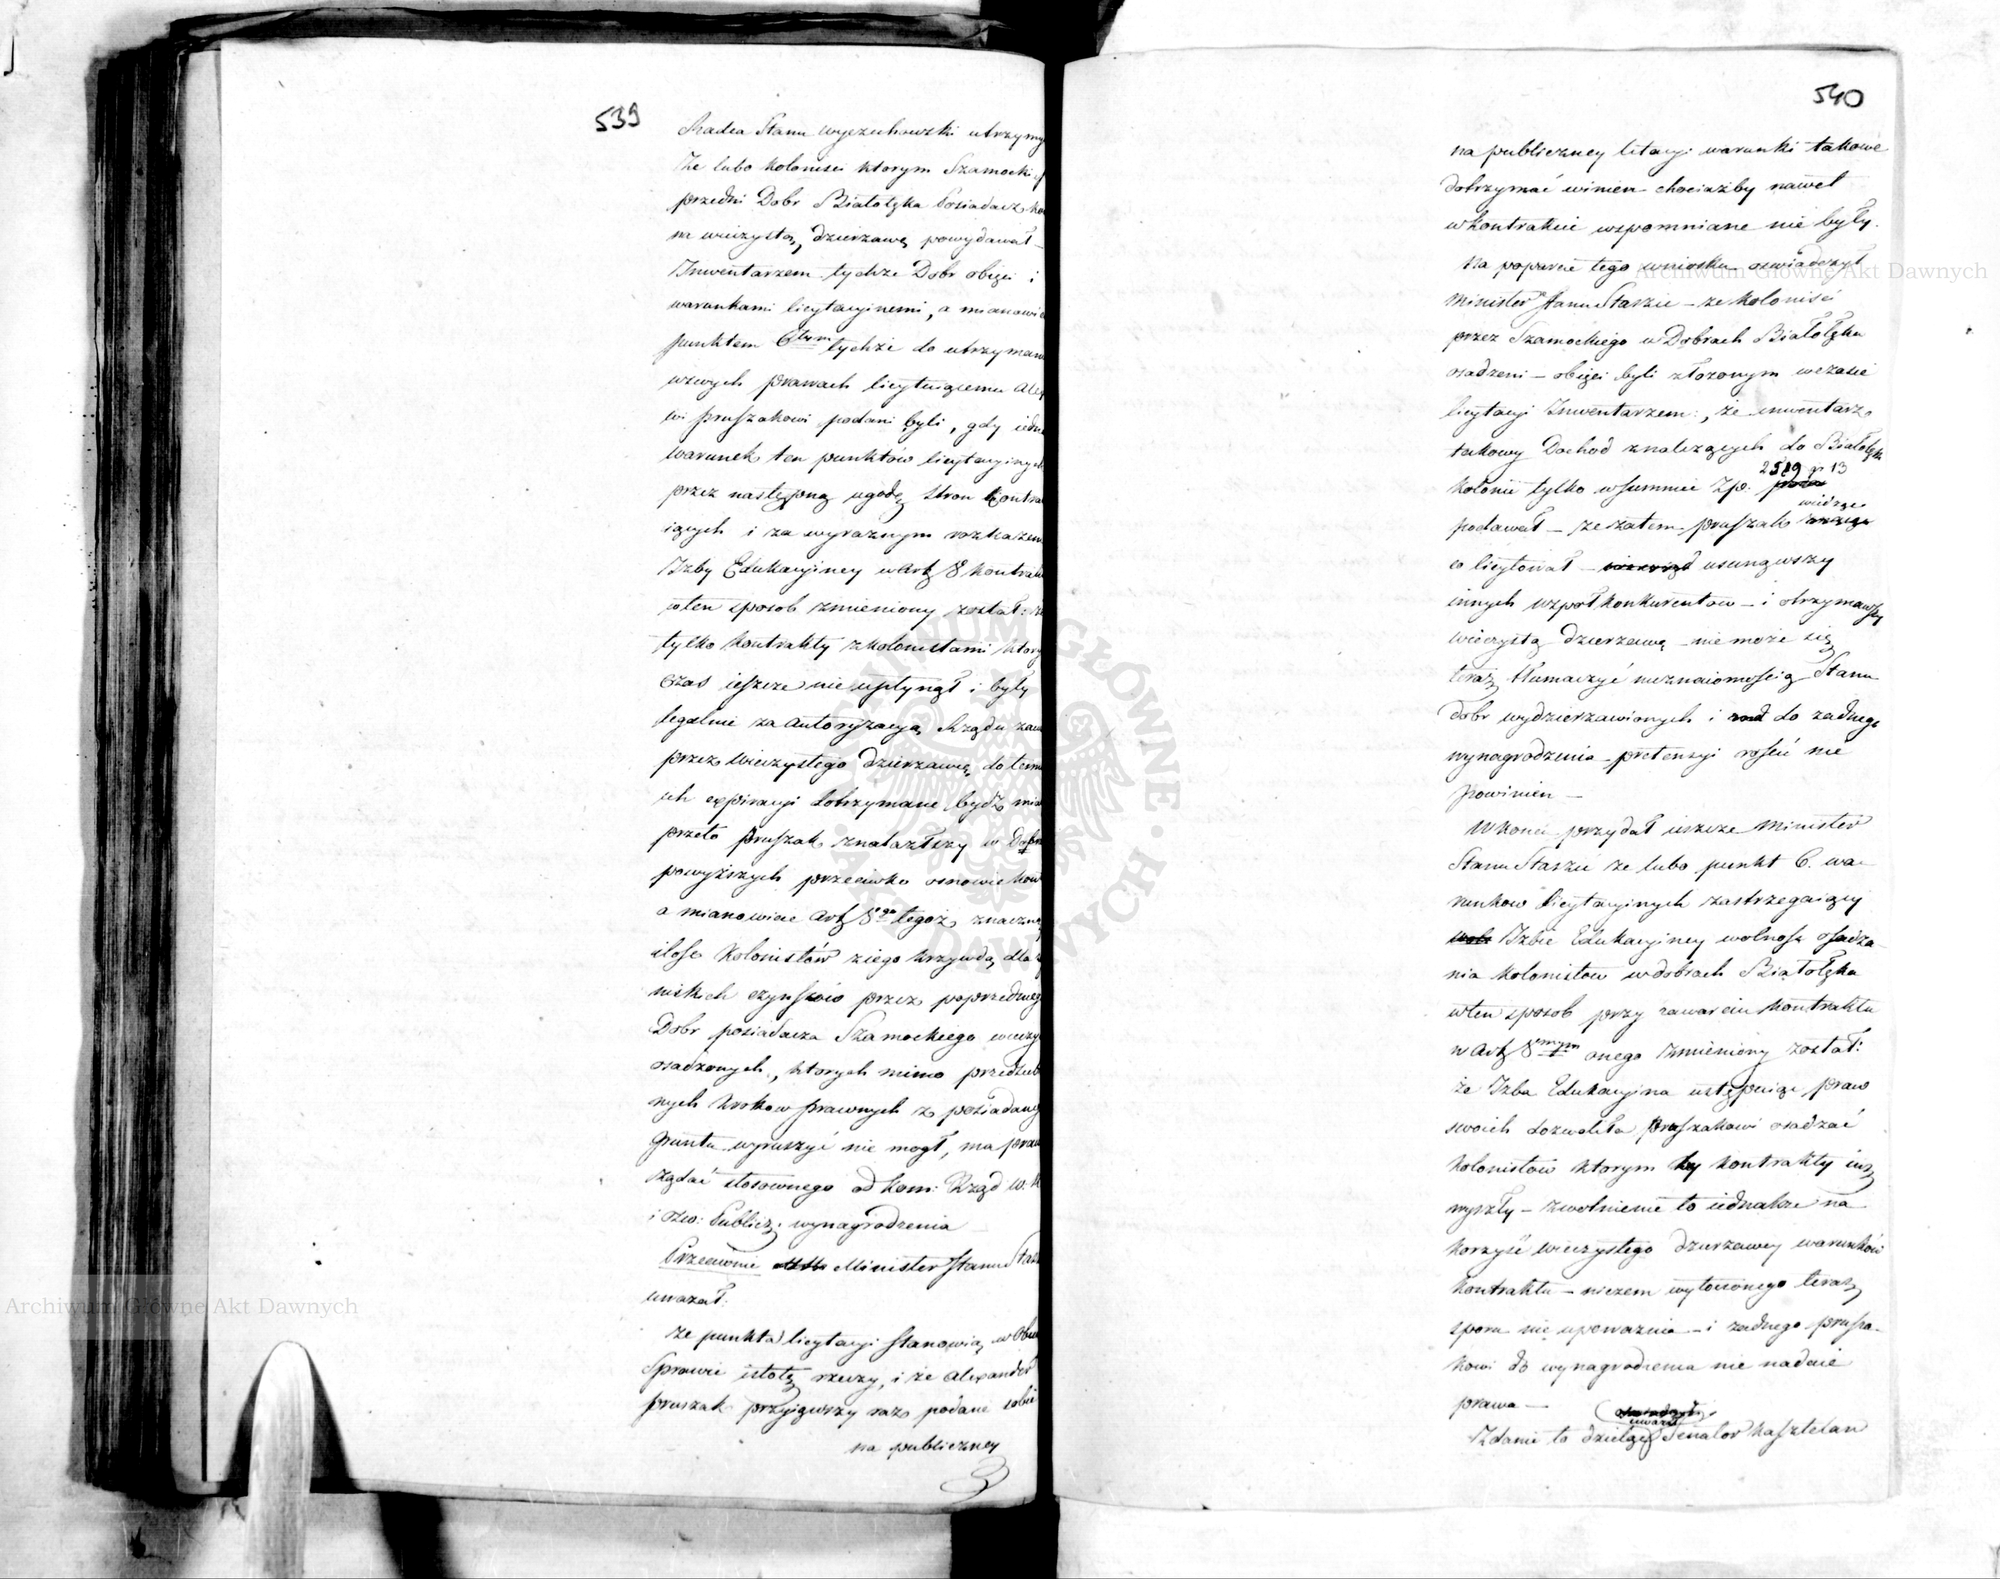 539
Radca Stanu Wyczechowski utrzymy
Że lubo kolonisci ktorym Szamocki
przedni Dobr Białołęka Posiadacz
na wieczystą dzierzawę powydawał
Inwentarzem tychże Dobr obięci i
warunkami licytacyinemi, a mianowi
punktem 6tym tychże do utrzyman
w swych prawach licytuiącemu Alex
wi Pruszakowi podani byli, gdy iedn
warunek ten punktów licytacyinych
przez następną ugodę stron kontra
iących i za wyraznym rozkazem
Izby Edukacyiney w Art 8 kontrak
w ten sposob zmieniony został: że
tylko kontrakty z kolonistami ktory
czas ieszcze nie upłynął i były
legalnie za autoryzacyą Rządu zaw
przez wieczystego dzierzawcę do term
ich expiracyi dotrzymane bydź mia
przeto Pruszak znalazłszy w Dobr
powyższych przeciwko osnowie kon
a mianowicie Art 8go tegoż znaczną
ilość kolonistów z iego krzywdą dla
niskich czynszów przez poprzednieg
Dobr posiadacza Szamockiego wieczy
osadzonych, ktorych mimo przedsięb
nych krokow prawnych z posiadaneg
gruntu wyruszyć nie mogł, ma praw
żądać stosownego od Kom: Rząd W. R
i Ośw: Publicz: wynagrodzenia
Przeciwnie Minister Stanu Stasz
uwazał:
że punkta licytacyi stanowią w obec
Sprawie istotę rzeczy, i że Alexander
Pruszak przyiąwszy raz podane sobie
na publiczney
540
na publiczney litacyi warunki takowe
dotrzymać winien chociażby nawet
w kontrakcie wspomniane nie były.
Na poparcie tego wniosku oswiadczył
Minister Stanu Staszic – że kolonisci
przez Szamockiego w Dobrach Białołęka
osadzeni – obięci byli złożonym w czasie
licytacyi Inwentarzem:, że inwentarz
takowy Dochod z należących do Białołęk
2519 gr 13
kolonii tylko w summie Zp.
widząc
podawał – że zatem Pruszak
co licytował – usunąwszy
innych wspołkonkurentow – i otrzymawszy
wieczystą dzierzawę – nie może się
teraz tłumaczyć nieznaiomością Stanu
dobr wydzierzawionych i do zadnego
wynagrodzenia pretensyi rościć nie
powinien –
W koncu przydał ieszcze Minister
Stanu Staszic że lubo punkt 6. wa-
runkow licytacyinych zastrzegaiący
Izbie Edukacyiney wolność osadza-
nia kolonistow w dobrach Białołęka
w ten sposob przy zawarciu kontraktu
w Art 8mym onego zmieniony został:
że Izba Edukacyina ustępuiąc praw
swoich dozwoliła Pruszakowi osadzać
kolonistow ktorym kontrakty iuż
wyszły – zwolnienie to iednakże na
korzyść wieczystego dzierzawcy warunków
kontraktu – niczem wytoczonego teraz
sporu nie upoważnia – i zadnego Prusza-
kowi do wynagrodzenia nie nadaie
prawa –
uwazał
Zdanie to dzieląc Senator Kasztelan